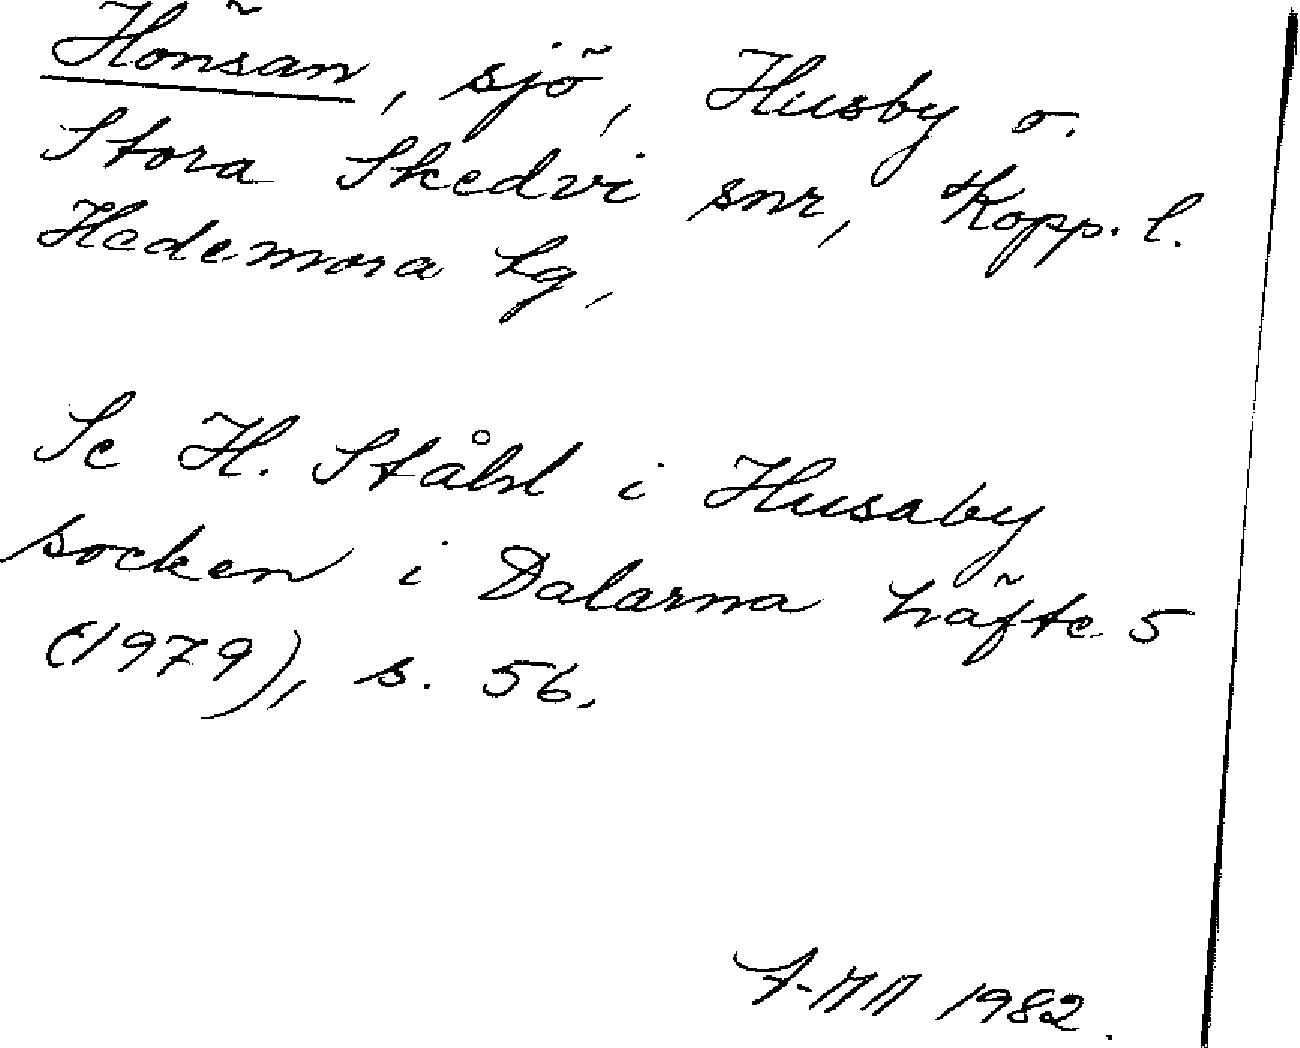 Hönsan, sjö, Husby o.
Stora Skedvi snr, Kopp. l.
Hedemora hg,
Se H. Ståhl i Husaby
socken i Dalarna häfte 5
(1979), s. 56.
1982.